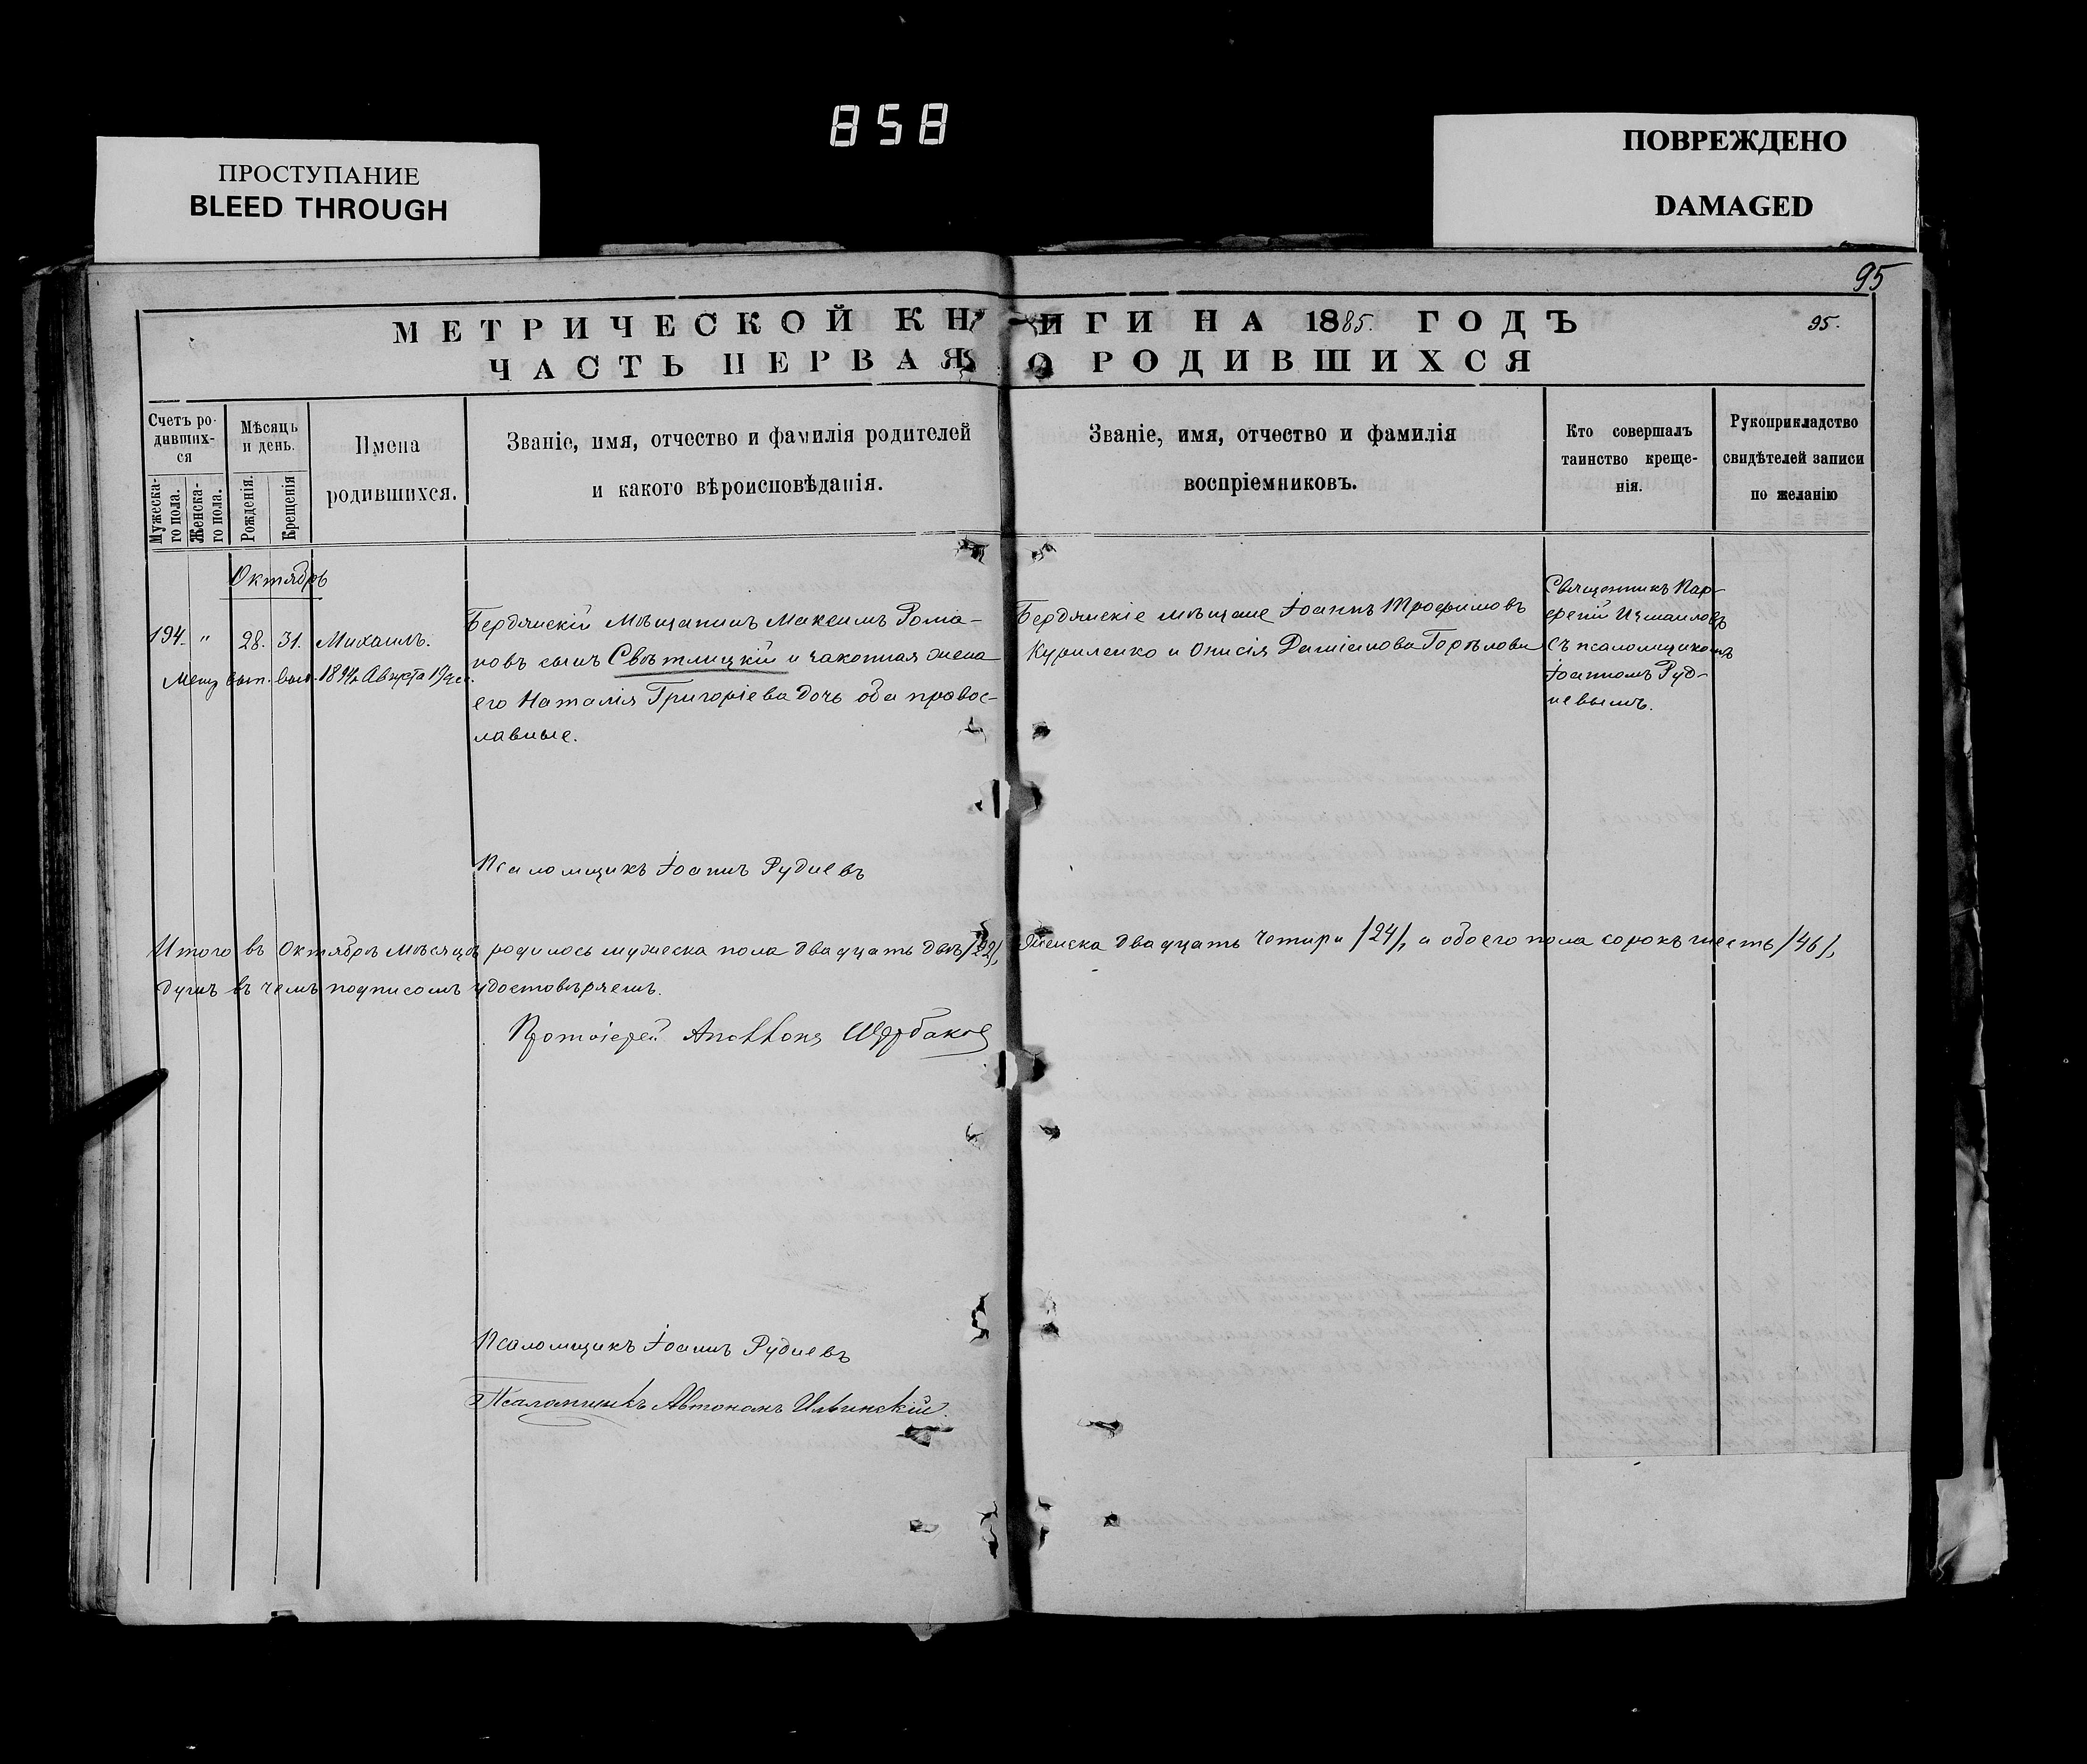 858
ПРОСТУПАНИЕ
BLEED THROUGH
ПОВРЕЖДЕНО
DAMAGED
95
МЕТРИЧЕСКОЙ КНИГИ НА 1885. ГОДЪ
95.
ЧАСТЬ ПЕРВАЯ О РОДИВШИХСЯ
Счетъ ро-
дивших-
ся
Мужеска-
го пола.
Женска-
го пола.
Мѣсяцъ
и день.
Рожденія.
Крещенія
Имена
родившихся.
Званіе, имя, отчество и фамилія родителей
и какого вѣроисповѣданія.
Званіе, имя, отчество и фамилія
воспріемниковъ.
Кто совершалъ
таинство креще-
нія.
Рукоприкладство
свидѣтелей записи
по желанію
Октябрь
194. " 28. 31. Михаилъ.
1894 Августа
Бердянскій Мѣщанинъ Максимъ Рома-
новъ сынъ Свѣтлицкій и законная жена
его Наталія Григоріева дочь оба правос-
лавные.
Бердянскіе мѣщане Іоаннъ Трофимовъ
Куриленко и Онисія Даміанова Горѣлова
Священникъ Пар-
феній Измаиловъ
съ псаломщикомъ
Іоанномъ Руд-
невымъ.
Псаломщикъ Іоаннъ Рудневъ
Итого въ Октябрѣ Мѣсяцѣ родилось мужеска пола двадцать два /22/, женска двадцать четыри /24/, а обоего пола сорокъ шесть /46/,
душъ въ чемъ подписомъ удостовѣряемъ.
Протоіерей Аполлонъ Щербаковъ
Псаломщикъ Іоаннъ Рудневъ
Псаломщикъ Автономъ Ильинскій.